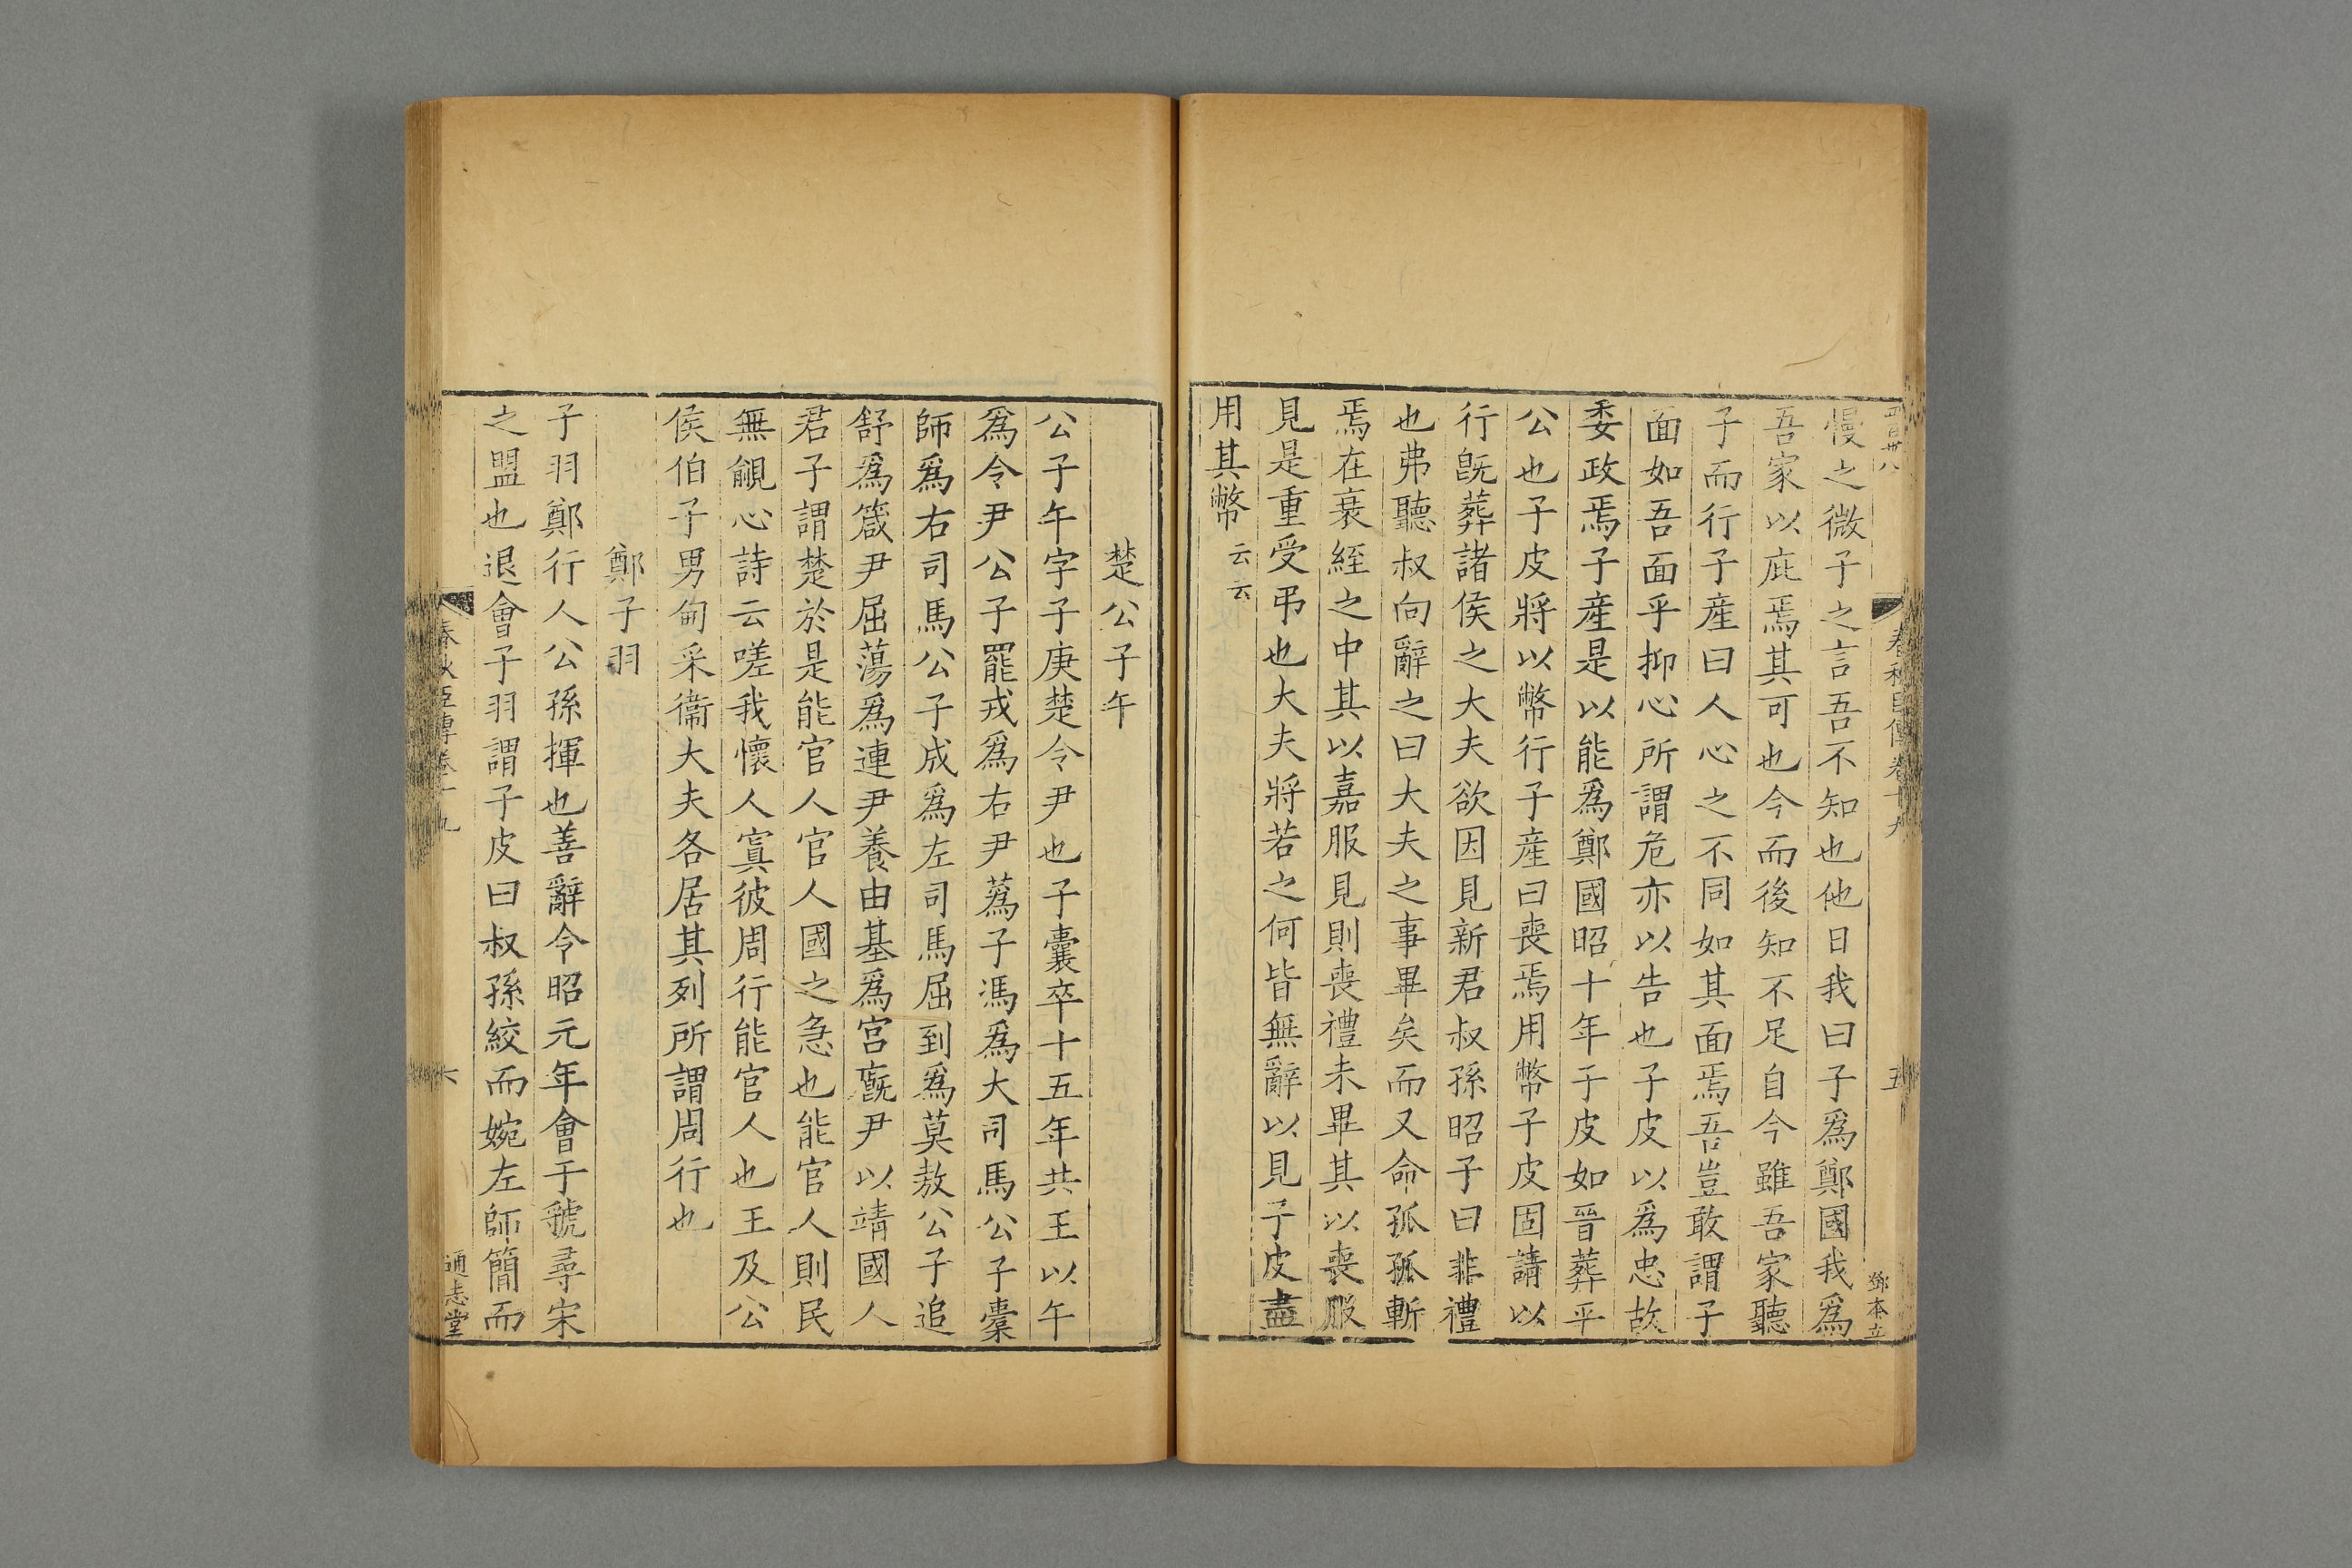 慢之微子之言吾不知也他日我曰子爲鄭國我爲
吾家以庇焉其可也今而後知不足自今雖吾家聽
子而行子産曰人心之不同如其面焉吾豈敢謂子
面如吾面乎抑心所謂危亦以告也子皮以爲忠故
委政焉子産是以能爲鄭國昭十年子皮如晉葬平
公也子皮將以幣行子産曰喪焉用幣子皮固請以
行旣葬諸侯之大夫欲因見新君叔孫昭子曰非禮
也弗聽叔向辭之曰大夫之事畢矣而又命孤孤斬
焉在衰絰之中其以嘉服見則喪禮未畢其以喪服
見是重受弔也大夫將若之何皆無辭以見子皮盡
用其幣云云
春秋臣傳卷十九
五
鄧本立
楚公子午
公子午字子庚楚令尹也子囊卒十五年共王以午
爲令尹公子罷戎爲右尹蔿子馮爲大司馬公子橐
師爲右司馬公子成爲左司馬屈到爲莫敖公子追
舒爲箴尹屈蕩爲連尹養由基爲宮廐尹以靖國人
君子謂楚於是能官人官人國之急也能官人則民
無覦心詩云嗟我懷人寘彼周行能官人也王及公
侯伯子男甸采衞大夫各居其列所謂周行也
鄭子羽
子羽鄭行人公孫揮也善辭令昭元年會于虢尋宋
之盟也退會子羽謂子皮曰叔孫絞而婉左師簡而
春秋臣傳卷十九
六
通志堂